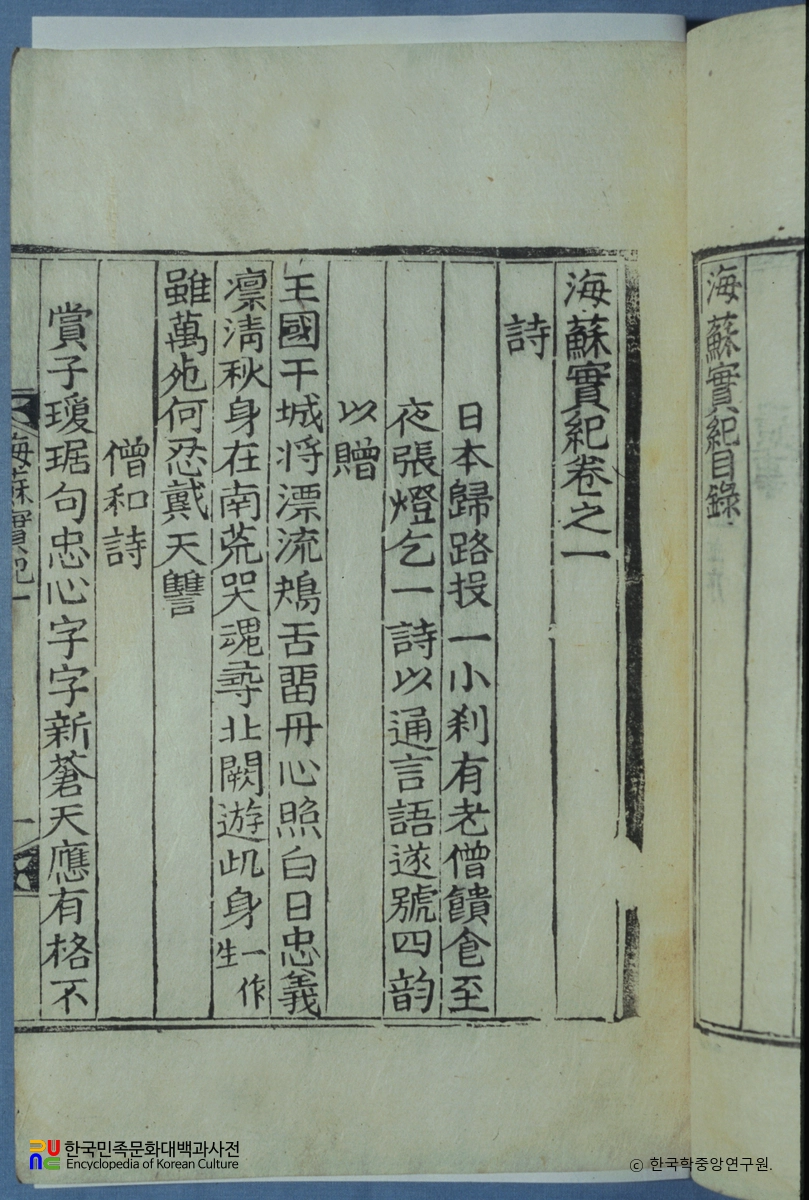 海蘇實紀目錄
海蘇實紀卷之一
詩
日本歸路投一小刹有老僧饋食至
夜張燈乞一詩以通言語遂號四韵
以贈
王國干城将漂流鴂舌畱丹心照白日忠義
凛清秋身在南荒哭魂尋北闕遊此身一作生
雖萬死何忍戴天讐
僧和詩
賞子瓊琚句忠心字字新蒼天應有格不
海蘇實紀一
一
한국민족문화대백과사전
Encyclopedia of Korean Culture
ⓒ 한국학중앙연구원.